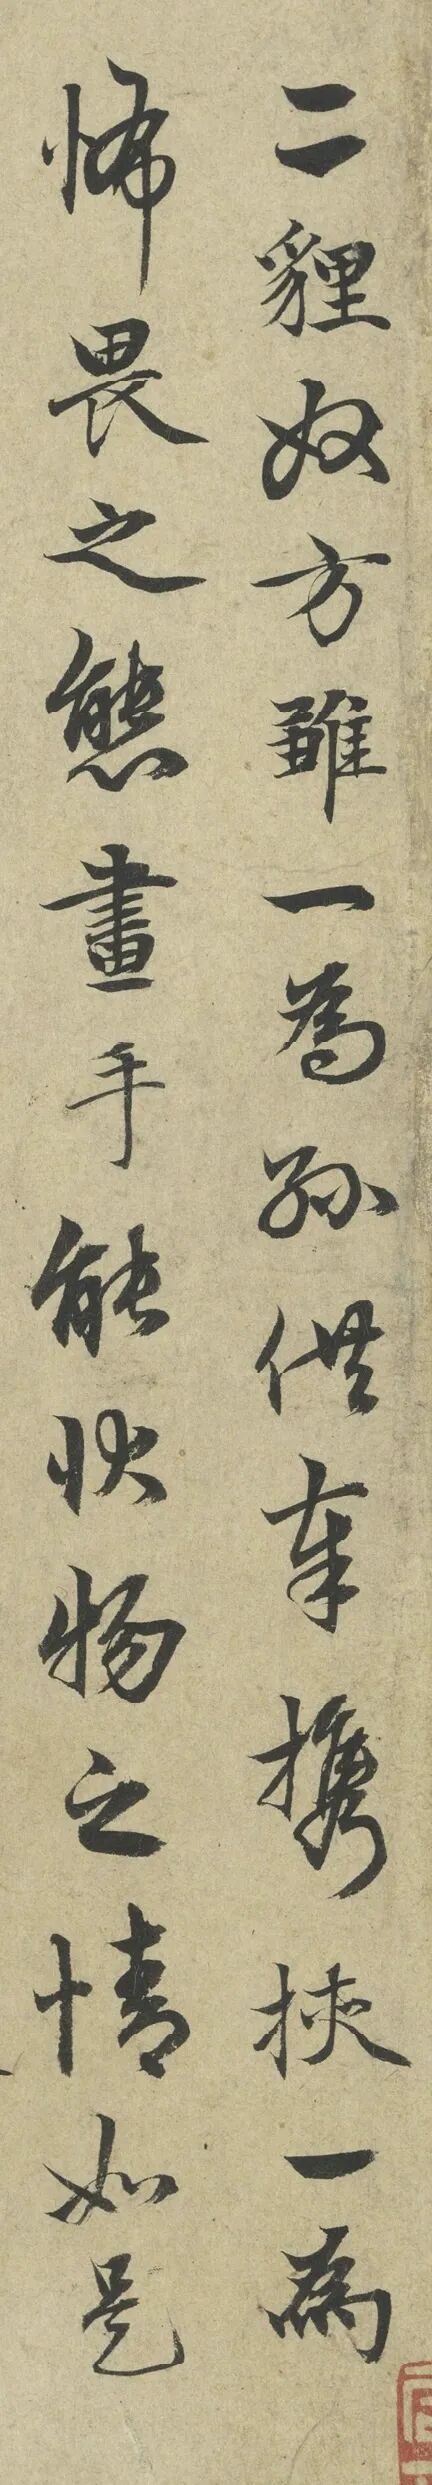 二貍奴方雛一為孫供奉攜挾一為
怖畏之態畫手能状物之情如是